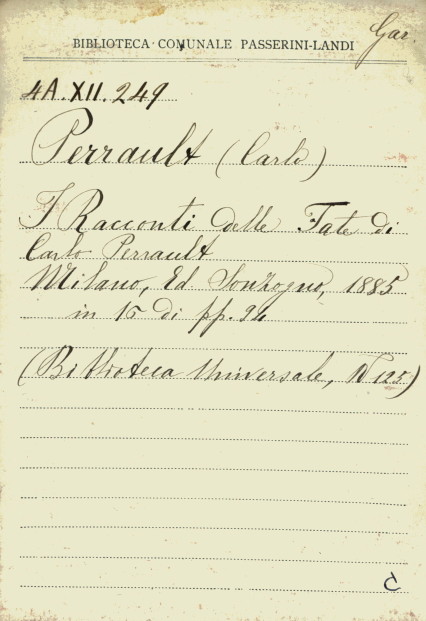 Gar.
BIBLIOTECA COMUNALE PASSERINI-LANDI
4A.XII.249
Perrault (Carlo)
I Racconti delle Fate di
Carlo Perrault
Milano, Ed Sonzogno, 1885
in 16 di pp. 94
(Biblioteca Universale, N 125)
C